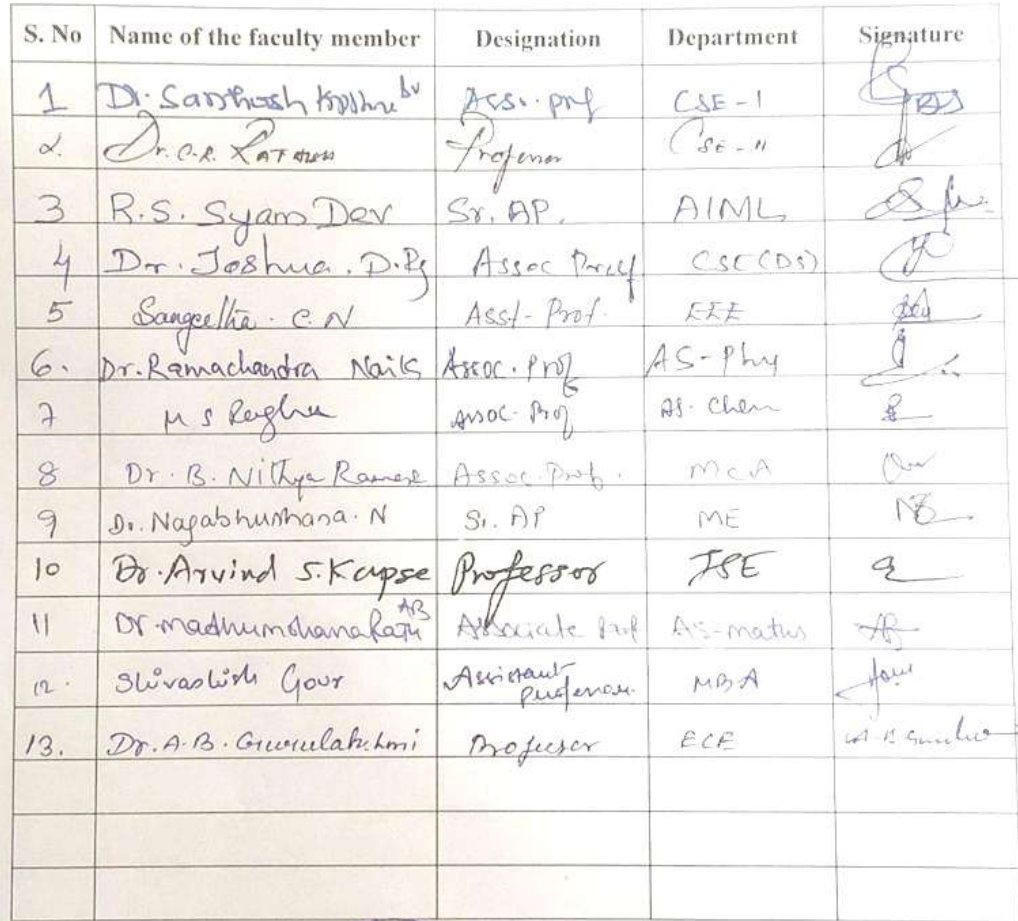 S. No Name of the faculty member Designation Department Signature
1 Dr. Santhosh Krishna BV Asso. prof CSE-1
2. Dr. C.R. Professor CSE-11
3 R.S. Syam Dev Sr. AP. AIML
4 Dr. Joshua. D. Assoc Prof CSE(DS)
5 Sangeetha. C.N Asst-Prof. EEE
6. Dr. Ramachandra Naik Assoc. Prof AS-Phy
7 M S Raghu Assoc. Prof AS. Chem
8 Dr. B. Nithya Ramesh Assoc. Prof. MCA
9 Dr. Nagabhushana. N Sr. AP ME
10 Dr. Arvind S. Kapse Professor ISE
11 Dr. Madhumohana Raju AB Associate Prof AS-maths
12. Shivashish Gour Assistant
professor. MBA
13. Dr. A.B. Gurulakshmi Professor ECE